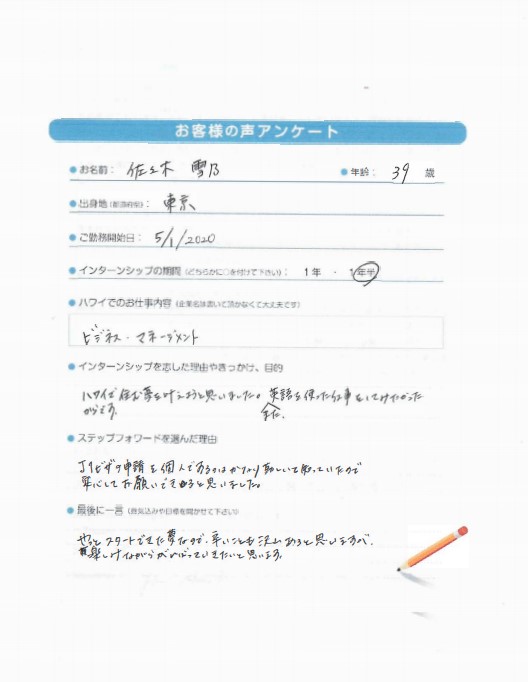 お客様の声アンケート
お名前： 佐々木 雪乃 年齢： 39 歳
出身地（都道府県）： 東京
ご勤務開始日： 5/1/2020
インターンシップの期間（どちらかに○を付けて下さい）： 1年 ・ 1年半
ハワイでのお仕事内容（企業名は書いて頂かなくて大丈夫です）
ビジネス・マネージメント
インターンシップを志した理由やきっかけ、目的
ハワイで住む夢を叶えようと思いました。英語を使った仕事をしてみたかった
また、
からです。
ステップフォワードを選んだ理由
J1ビザの申請を個人でするのはかなり難しいと知っていたので
安心してお願いできると思いました。
最後に一言（意気込みや目標を聞かせて下さい）
やっとスタートできた夢なので、辛いことも沢山あると思いますが、
楽しみながらがんばっていきたいと思います。